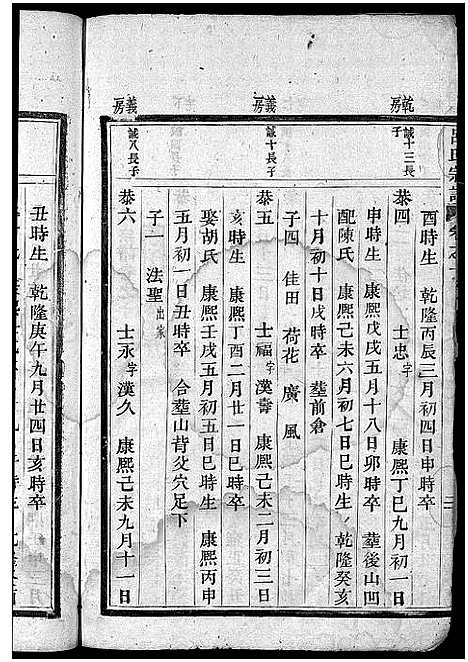 酉時生 乾隆丙辰三月初四日申時卒
乾房
誠十三長子
恭四 士忠字 康熙丁巳九月初一日
申時生 康熙戊戌五月十八日卯時卒 塟後山凹
配陳氏 康熙己未六月初七日巳時生 乾隆癸亥
十月初十日戌時卒 塟前倉
子四 佳田 荷花 廣 風
義房
誠十長子
恭五 士福字漢壽 康熙己未二月初三日
亥時生 康熙丁酉二月廿一日巳時卒
娶胡氏 康熙壬戌五月初五日巳時生 康熙丙申
五月初一日丑時卒 合塟山背父穴足下
子一 法聖出家
義房
誠八長子
恭六 士永字漢久 康熙己未九月十一日
丑時生 乾隆庚午九月廿四日亥時卒